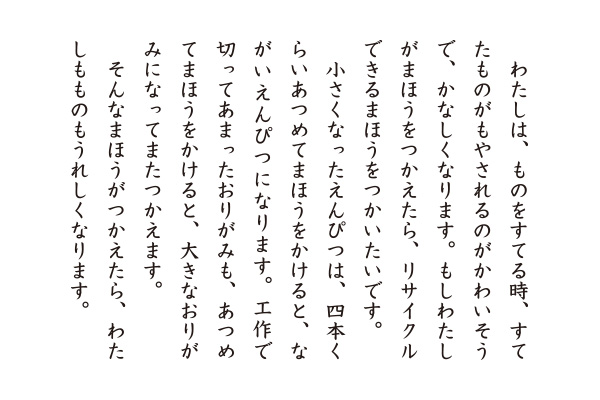 わたしは、ものをすてる時、すて
たものがもやされるのがかわいそう
で、かなしくなります。もしわたし
がまほうをつかえたら、リサイクル
できるまほうをつかいたいです。
　小さくなったえんぴつは、四本く
らいあつめてまほうをかけると、な
がいえんぴつになります。工作で
切ってあまったおりがみも、あつめ
てまほうをかけると、大きなおりが
みになってまたつかえます。
　そんなまほうがつかえたら、わた
しもものもうれしくなります。